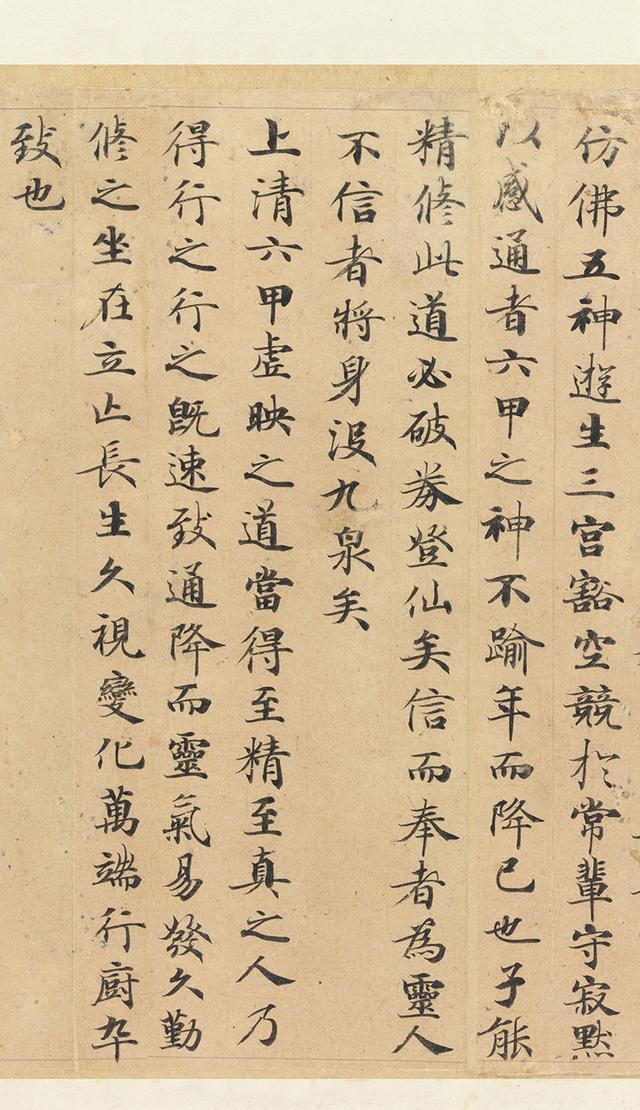 仿佛五神遊生三宫豁空競於常輩守寂默
以感通者六甲之神不踰年而降已也子能
精脩此道必破券登仙矣信而奉者為靈人
不信者將身没九泉矣
上清六甲虛映之道當得至精至真之人乃
得行之行之既速致通降而靈氣易發久勤
脩之坐在立亡長生久視變化萬端行廚卒
致也